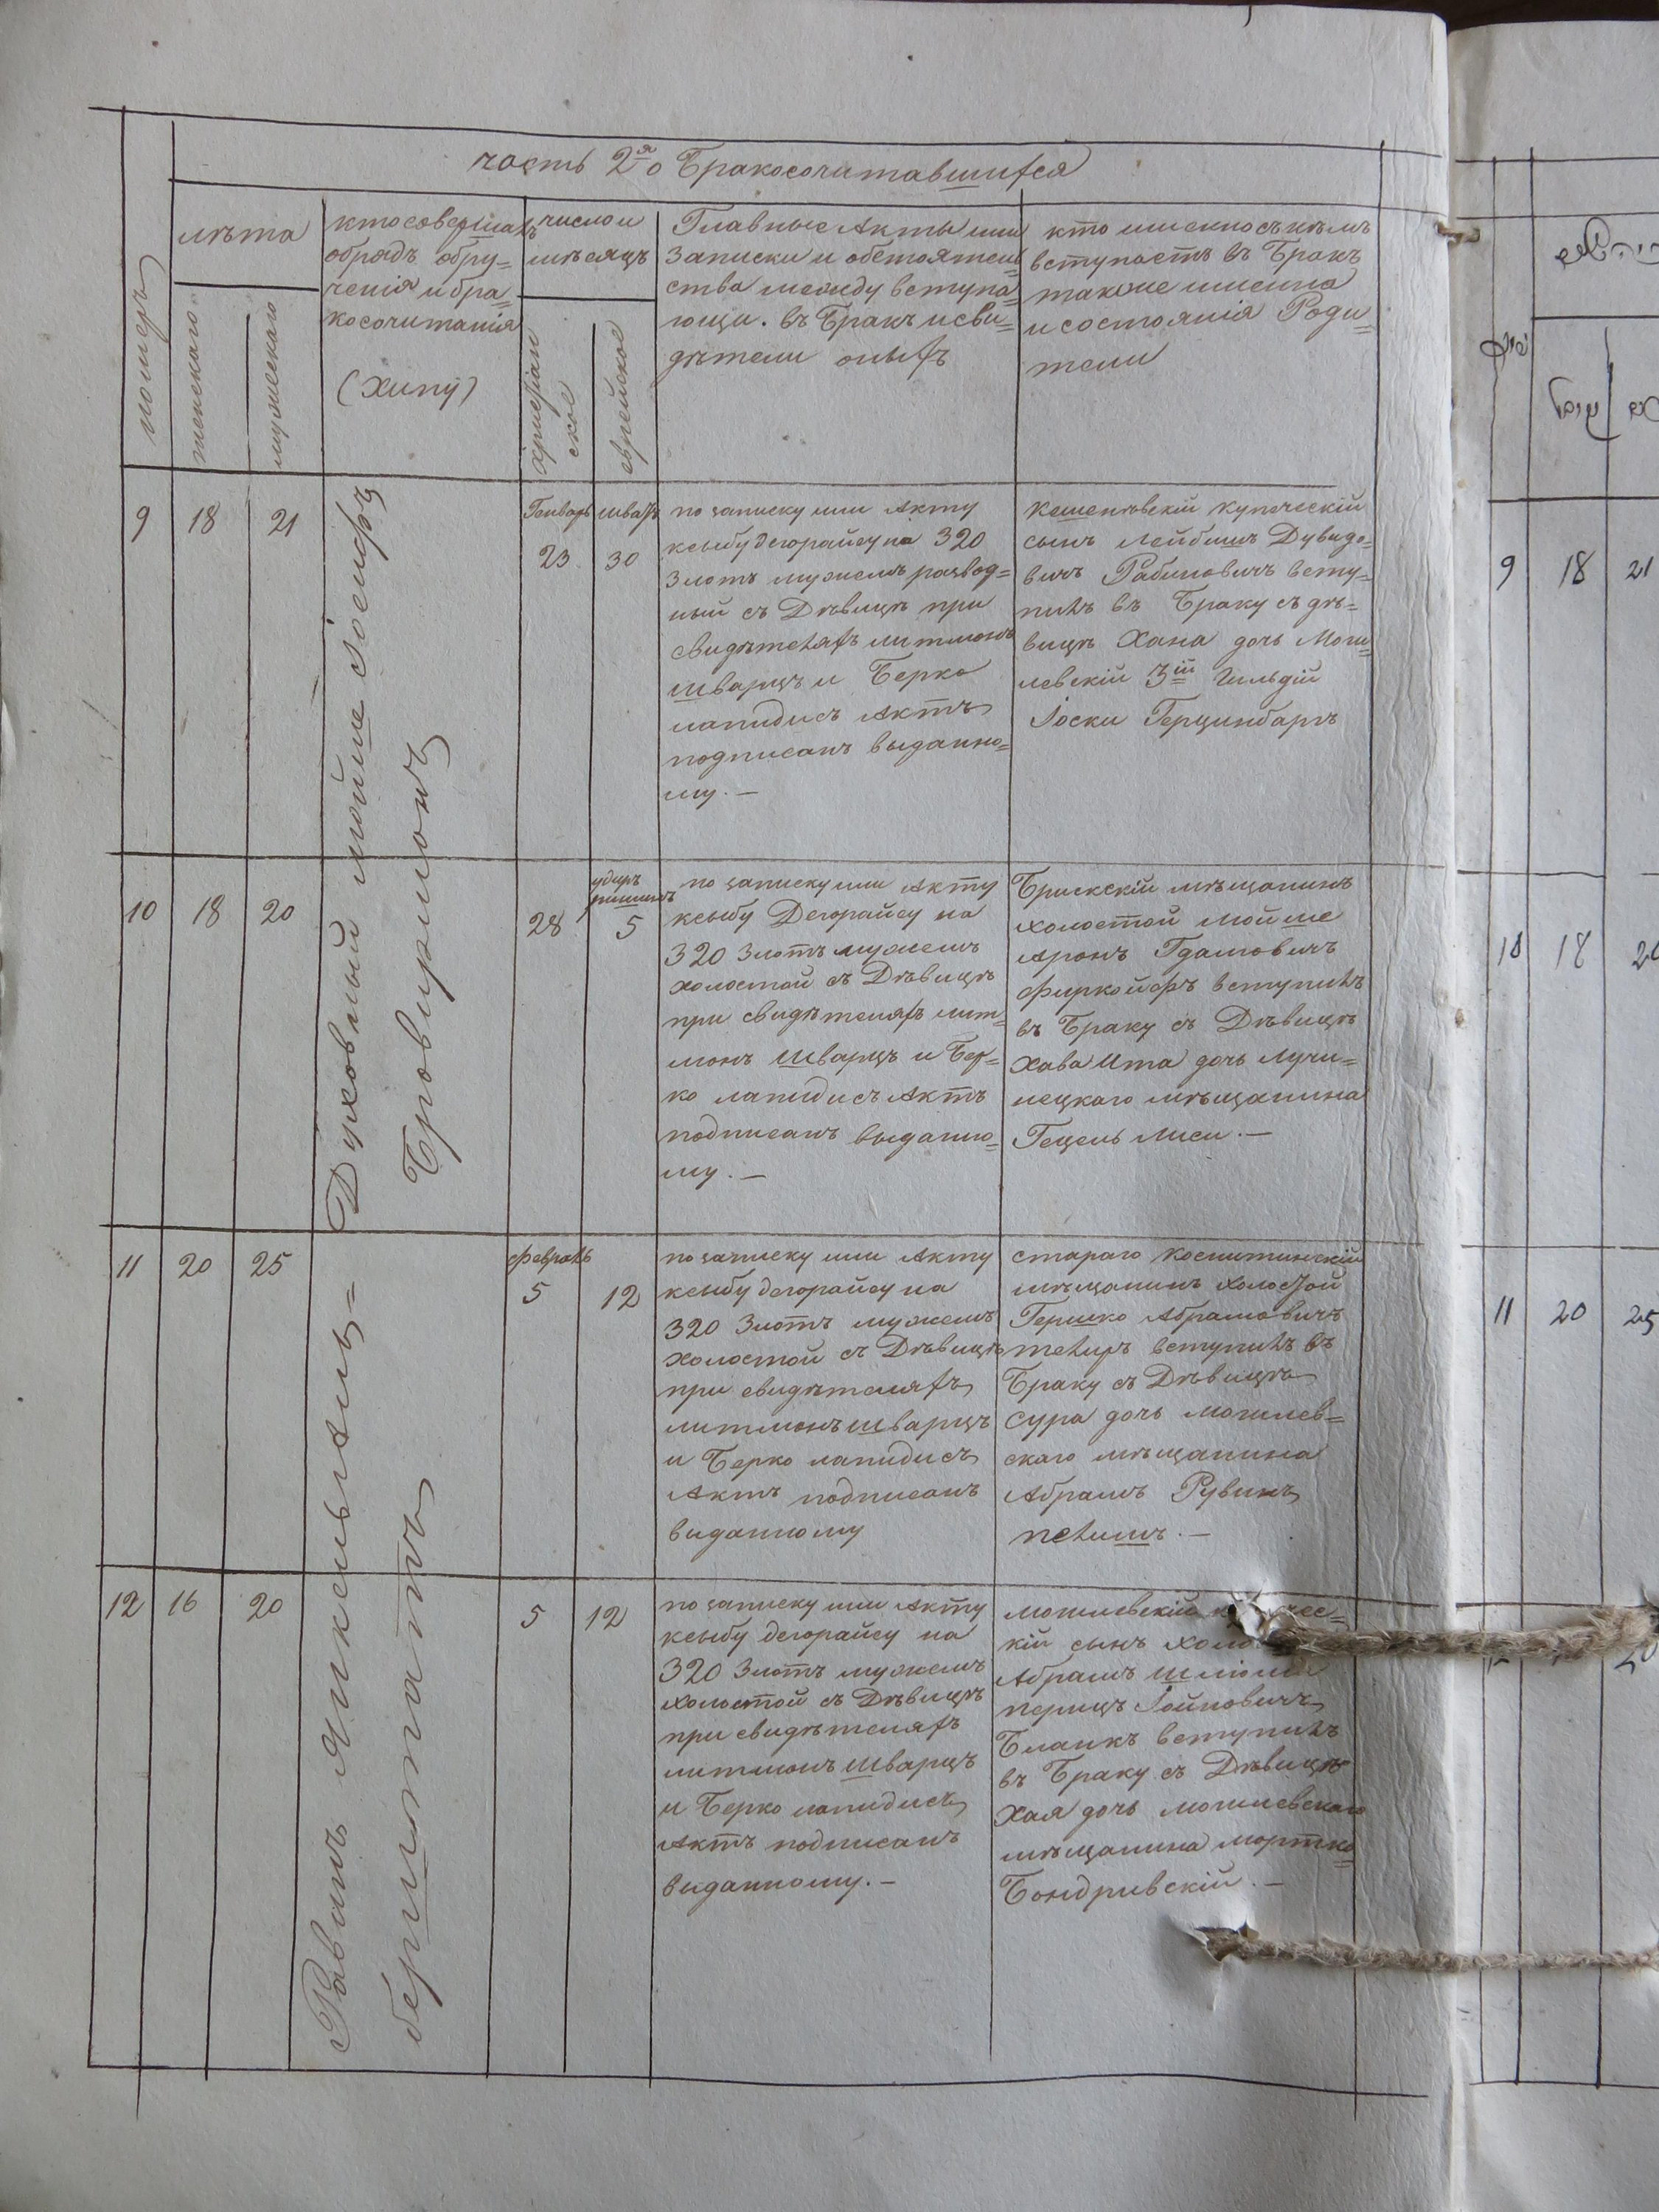 часть 2я о Бракосочитавшихся
номеръ
лѣта
женскаго
мужескаго
кто совершалъ
обрядъ обру=
ченія и бра=
косочитанія
(хипу)
число и
мѣсяцъ
христіан
ское
еврейское
Главные Акты или
Записки и обстоятель
ства между вступа=
ющи. въ Бракъ и сви=
дѣтели оныхъ
кто именно съ кѣмъ
вступаетъ въ Бракъ
также имена
и состоянія Роди=
тели
9
18
21
Духовный мойше Іосифъ
Бровирмонъ
Генварь
23
шватъ
30
по запиську или Акту
ксыбу дегорайсу на 320
Злотъ мужемъ развод=
ный съ Дѣвицѣ при
свидѣтеляхъ литмонъ
шварцъ и Берко
лапидисъ Актъ
подписанъ выданно=
му. —
Кешеневскій купеческій
сынъ Лейбишъ Дувидо=
вичъ Рабиновичъ всту=
пилъ въ Браку съ дѣ=
вицѣ Хана дочь Моги=
левскій 3ій Гильдій
Іоски Герцинбаръ
10
18
20
28
5
по запиську или Акту
ксыбу Дегорайсу на
320 Злотъ мужемъ
холостой съ Дѣвицѣ
при свидѣтеляхъ лит=
монъ Шварцъ и Бер=
ко лапидисъ Актъ
подписанъ выданно=
му. —
Брискскій мѣщанинъ
холостой Мойше
Аронъ Гдамовичъ
Фиркойфъ вступилъ
въ Браку съ Дѣвицѣ
Хава Ита дочь Лучи=
нецкаго мѣщанина
Гецель Лиси. —
11
20
25
Равинъ Янкель Аль=
берштатъ
Февраль
5
12
по запиську или Акту
ксыбу дегорайсу на
320 Злотъ мужемъ
холостой съ Дѣвицѣ
при свидѣтеляхъ
литмонъ шварцъ
и Берко лапидисъ
Актъ подписанъ
виданному
стараго Коснитинскій
мѣщанинъ холостой
Гершко Абрамовичъ
телиръ вступилъ въ
Браку съ Дѣвицѣ
Сура дочь могилев=
скаго мѣщанина
Абрамъ Рувинъ
пелишъ. —
12
16
20
5
12
по запиську или Акту
ксыбу дегорайсу на
320 Злотъ мужемъ
холостой съ Дѣвицѣ
при свидѣтеляхъ
литмонъ шварцъ
и Берко лапидисъ
Актъ подписанъ
виданному. —
могилевскій
кій сынъ
Абрамъ Шліома
перицъ Іойновичъ
Бланкъ вступилъ
въ Браку съ Дѣвицѣ
Хая дочь могилевскаго
мѣщанина мортко=
Бондривскій. —
9 18 21
10 18
11 20 25